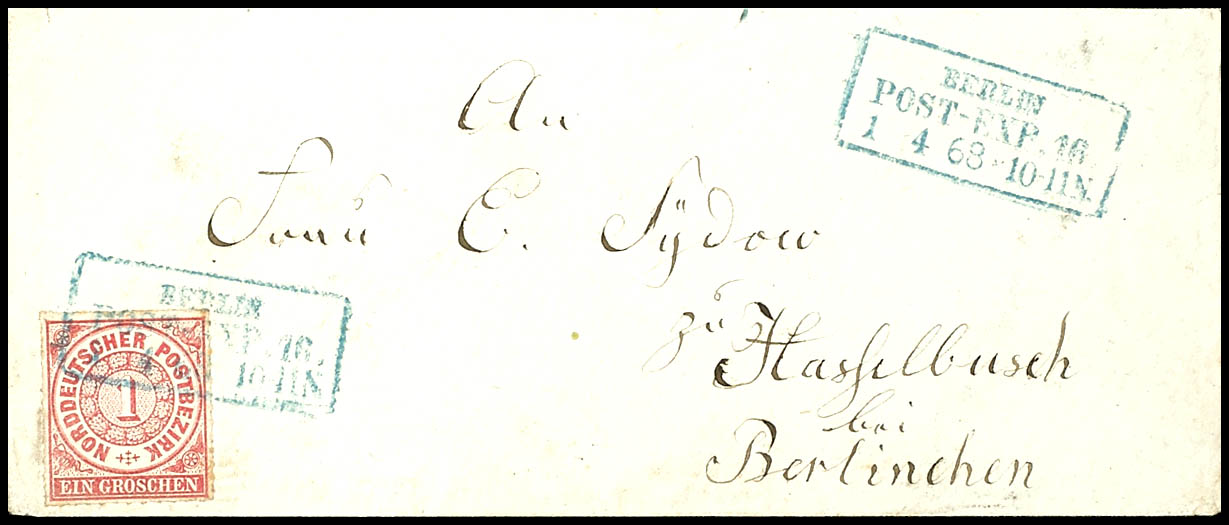 BERLIN
POST-EXP. 16.
1 4 68 * 10-11N.
An
Frau E. Sydow
zu
Hasselbusch
bei
Berlinchen
BERLIN
POST-EXP. 16.
1 4 10-11N
NORDDEUTSCHER POSTBEZIRK
1
EIN GROSCHEN